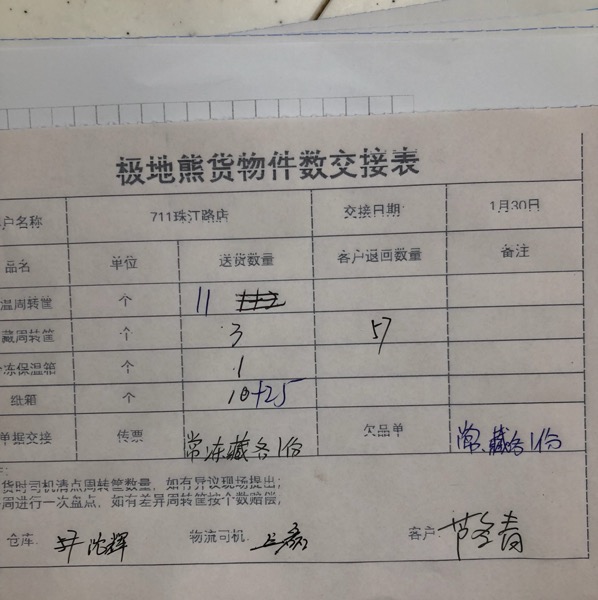 极地熊货物件数交接表
户名称 711珠江路店 交接日期: 1月30日
品名 单位 送货数量 客户退回数量 备注
温周转筐 个 11
藏周转筐 个 3 57
冻保温箱 个 1
纸箱 个 10+25
单据交接 传票 常冻藏各1份 欠品单 常、藏各1份
货时司机清点周转筐数量, 如有异议现场提出;
周进行一次盘点, 如有差异周转筐按个数赔偿;
仓库: 物流司机: 客户: